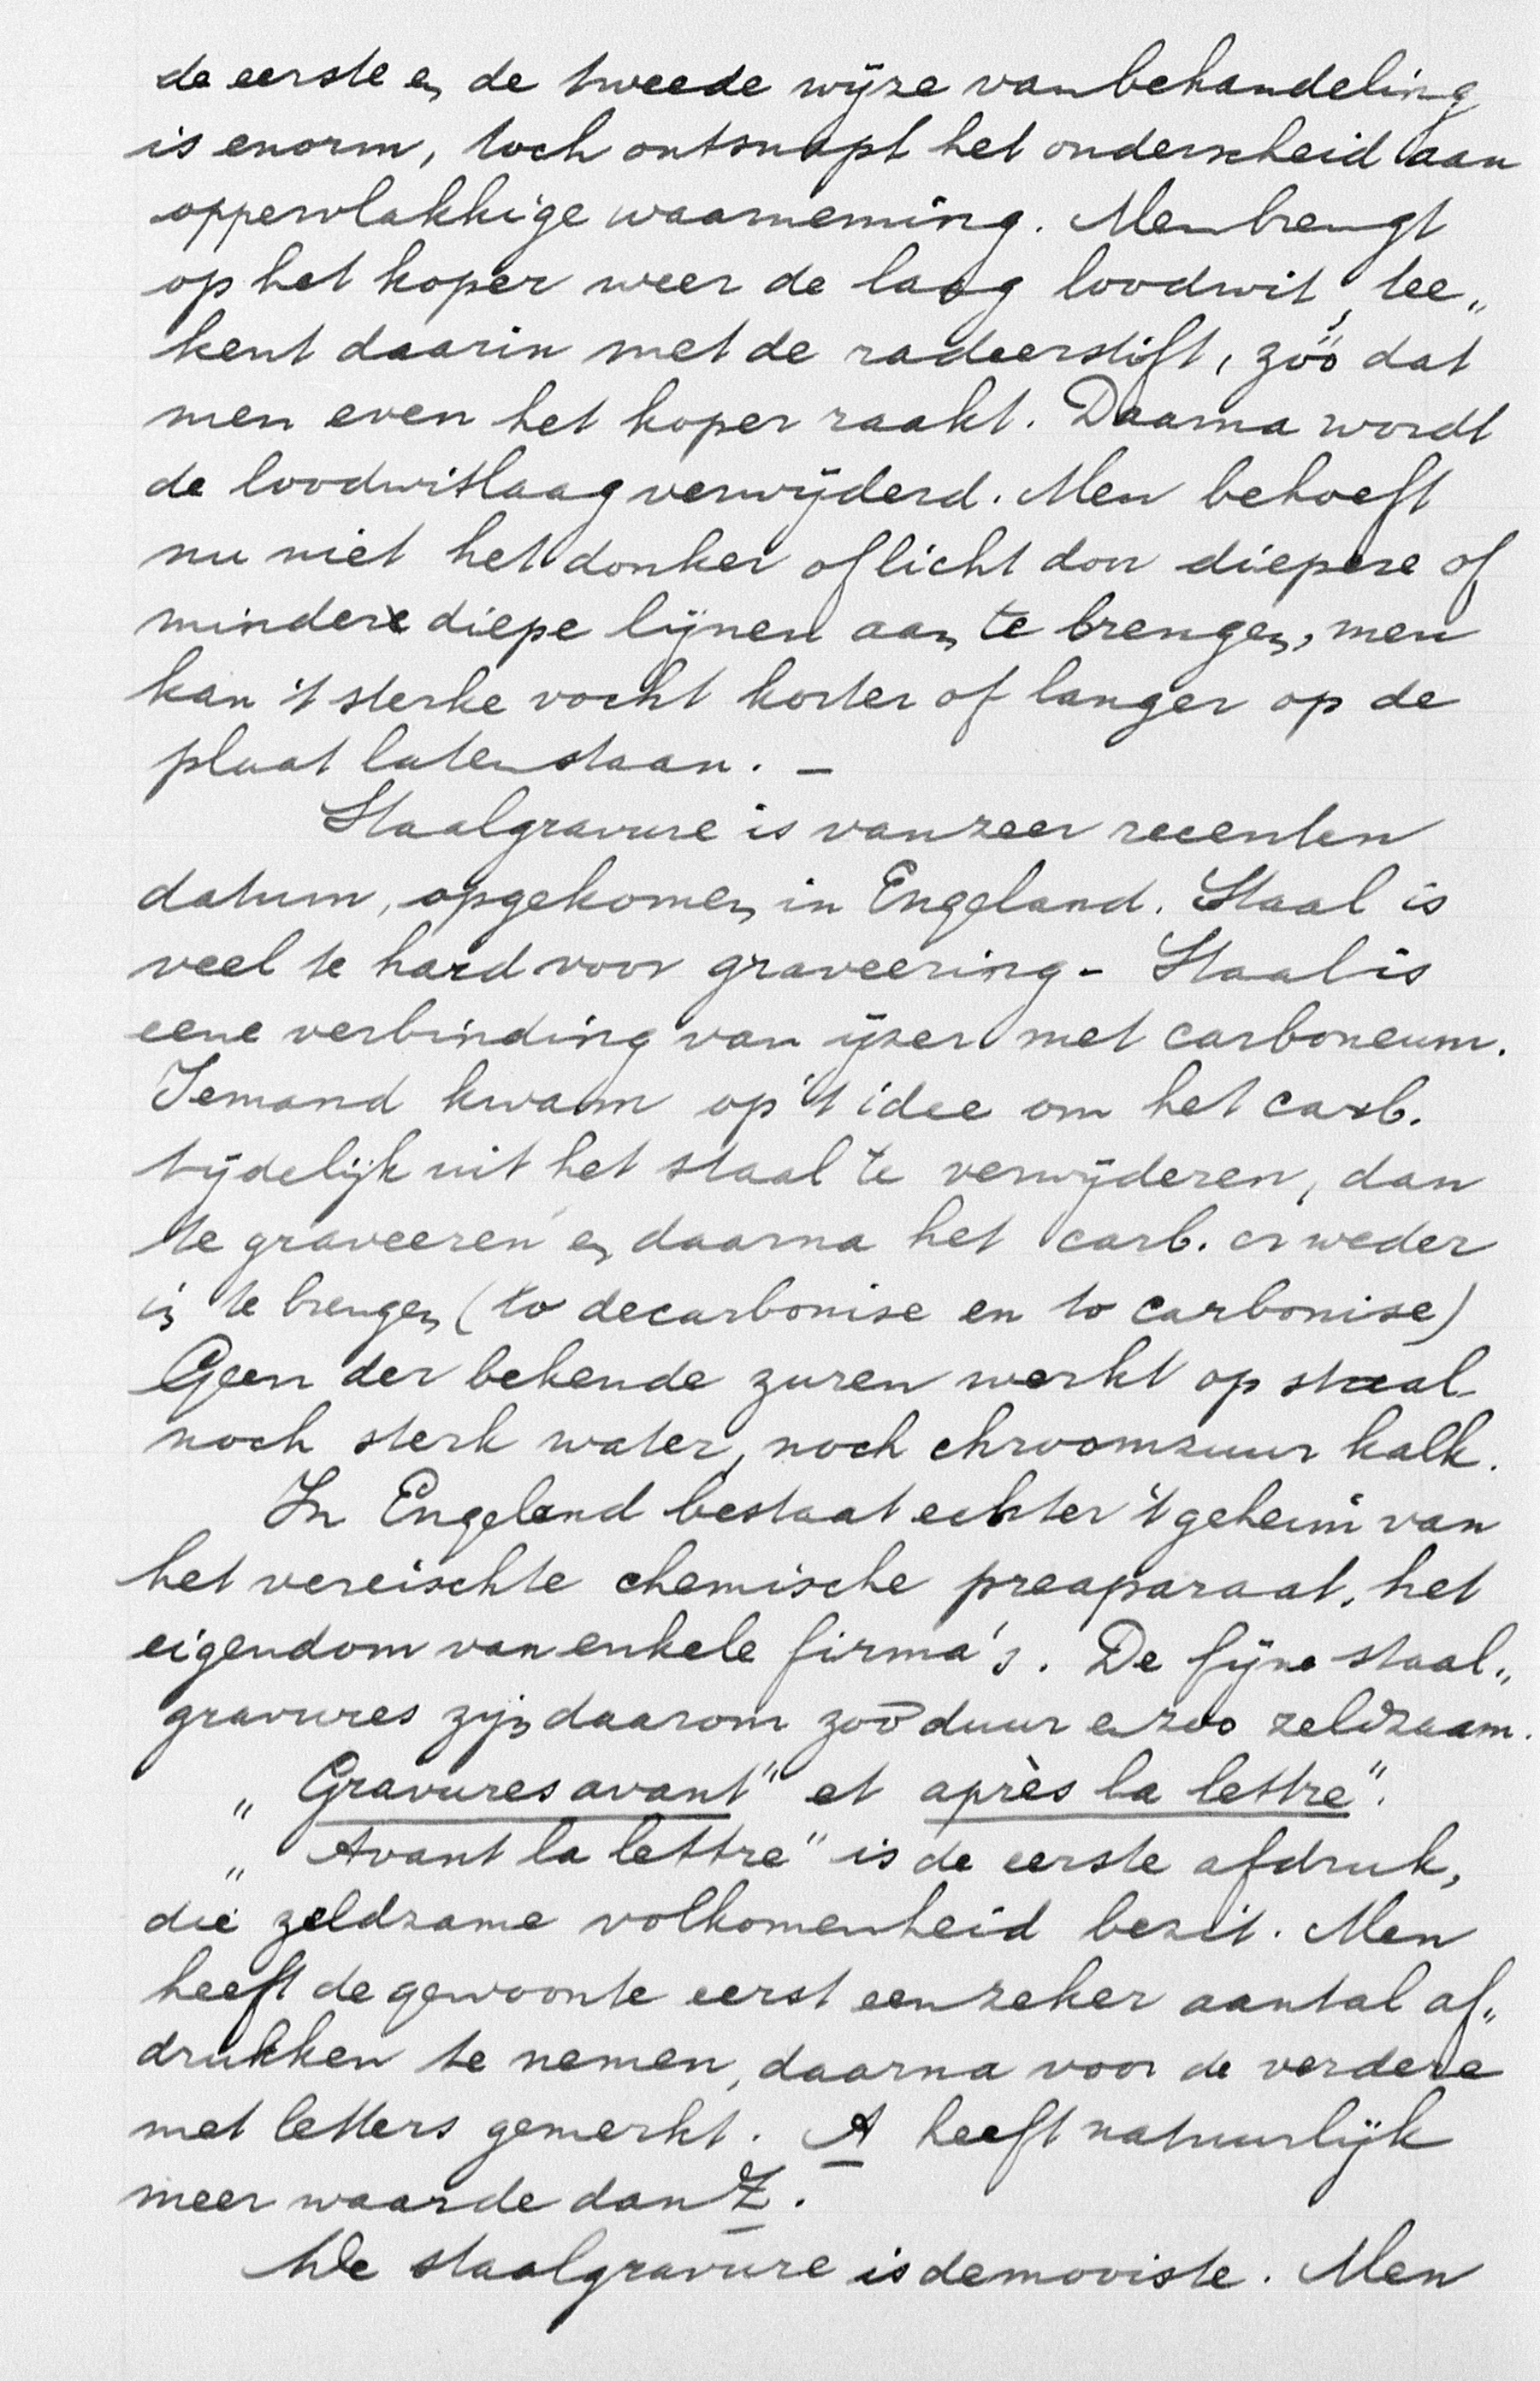 de eerste en de tweede wijze van behandeling
is enorm, toch ontsnapt het onderscheid aan
oppervlakkige waarneming. Men brengt
op het koper weer de laag loodwit, tee„
kent daarin met de radeerstift, zóó dat
men even het koper raakt. Daarna wordt
de loodwitlaag verwijderd. Men behoeft
nu niet het donker of licht door diepere of
mindere diepe lijnen aan te brengen, men
kan 't sterke vocht korter of langer op de
plaat laten staan. –
Staalgravure is van zeer recenten
datum, opgekomen in Engeland. Staal is
veel te hard voor graveering – Staal is
eene verbinding van ijzer met carboneum.
Iemand kwam op 't idee om het carb.
tijdelijk uit het staal te verwijderen, dan
te graveeren en daarna het carb. er weder
in te brengen (to decarbonise en to carbonise)
Geen der bekende zuren werkt op staal
noch sterk water, noch chroomzuur kalk.
In Engeland bestaat echter 't geheim van
het vereischte chemische preaparaat, het
eigendom van enkele firma's. De fijne staal„
gravures zijn daarom zoo duur en zoo zeldzaam.
„Gravures avant" et après la lettre".
„Avant la lettre" is de eerste afdruk,
die zeldzame volkomenheid bezit. Men
heeft de gewoonte eerst een zeker aantal af„
drukken te nemen, daarna voor de verdere
met letters gemerkt. A heeft natuurlijk
meer waarde dan Z.
De staalgravure is de mooiste. Men